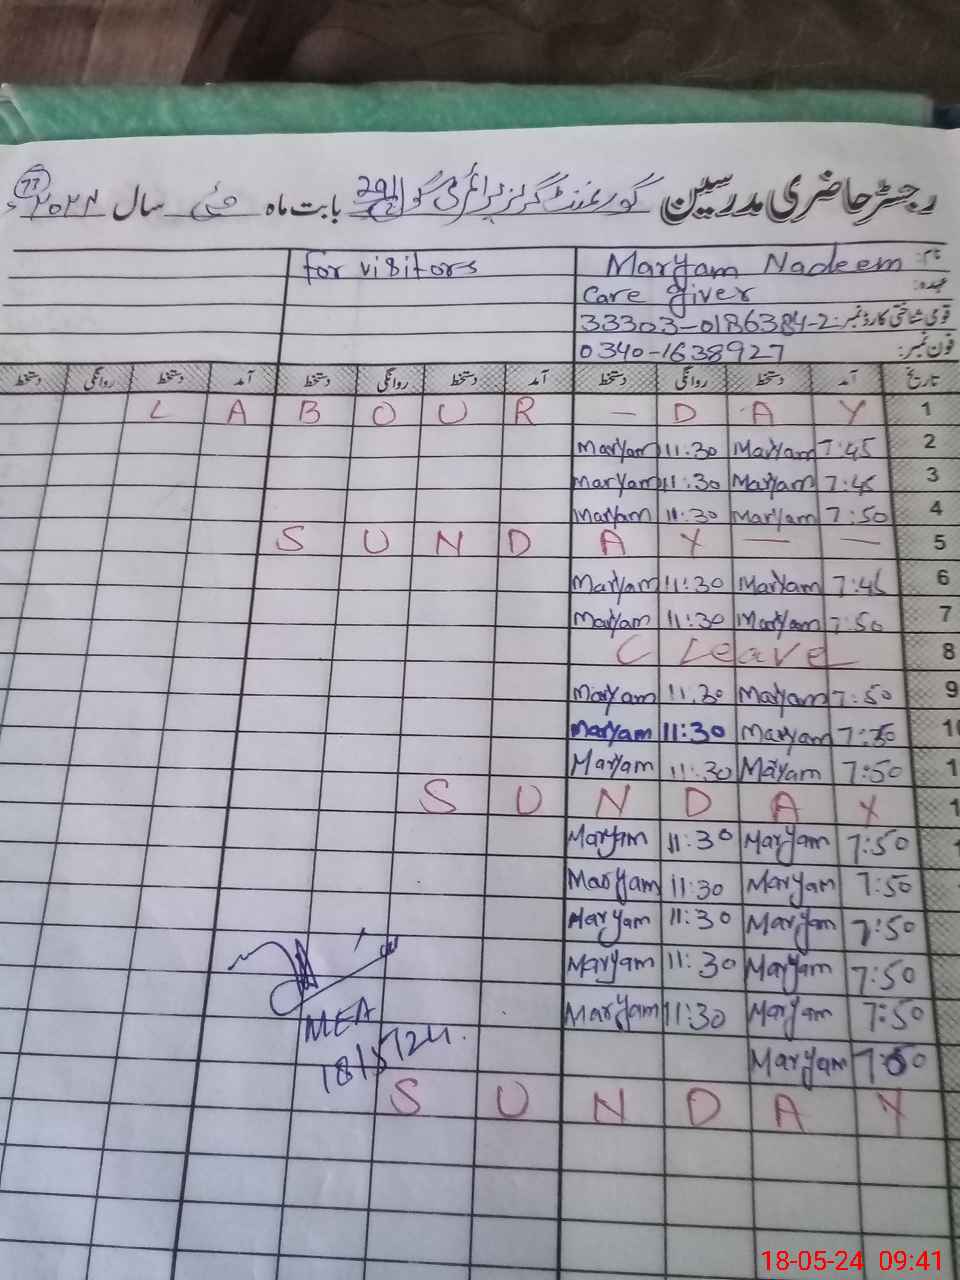 رجسٹر حاضری مدرسین گورنمنٹ گرلز پرائمری سکول 291 بابت ماہ مئی سال ۲۰۲۴ء
77
نام: Maryam Nadeem for visitors
عہدہ: Care giver
قومی شناختی کارڈ نمبر: 33303-0186384-2
فون نمبر: 0340-1638927
تاریخ آمد دستخط روانگی دستخط آمد دستخط روانگی دستخط آمد دستخط روانگی دستخط
1 L A B O U R - D A Y
2 7:45 Maryam 11:30 Maryam
3 7:45 Maryam 11:30 Maryam
4 7:50 Maryam 11:30 Maryam
5 S U N D A Y — —
6 7:45 Maryam 11:30 Maryam
7 7:50 Maryam 11:30 Maryam
8 C Leave
9 7:50 Maryam 11:30 Maryam
10 Maryam 11:30 Maryam
1 7:50 Maryam 11:30 Maryam
1 S U N D A Y
7:50 Maryam 11:30 Maryam
7:50 Maryam 11:30 Maryam
7:50 Maryam 11:30 Maryam
7:50 Maryam 11:30 Maryam
7:50 Maryam 11:30 Maryam
7:50 Maryam
MEA
18/5/24.
S U N D A Y
18-05-24 09:41